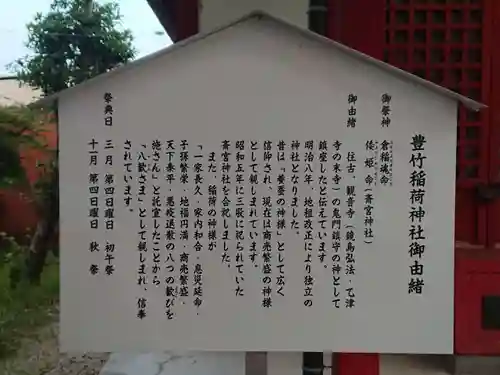 豊竹稲荷神社御由緒
御祭神 倉稲魂命
倭姫命(斎宮神社)
御由緒
往古、観音寺(鏡島弘法・乙津
寺の末寺)の鬼門鎮守の神として
鎮座したと伝えています。
明治八年、地租改正により独立の
神社となりました。
昔は「養蚕の神様」として広く
信仰され、現在は商売繁盛の神様
として親しまれています。
昭和五年に三殿に祀られていた
斎宮神社を合祀しました。
また、稲荷の神様が
「一家長久・家内和合・息災延命・
子孫繁栄・地福円満・商売繁盛・
天下泰平・悪疫退散の八つの歓びを
施さん」と託宣したことから
「八歓さま」として親しまれ、信奉
されています。
祭典日
三月 第四日曜日 初午祭
十一月 第四日曜日 秋祭